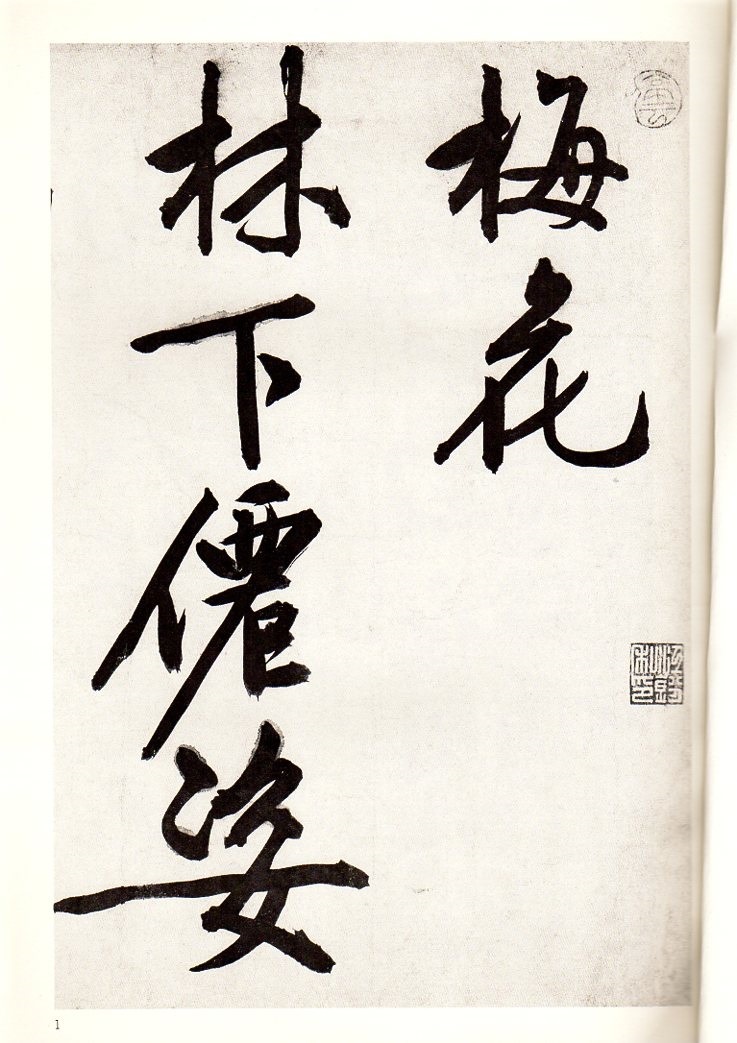 梅花
林下僊姿
1